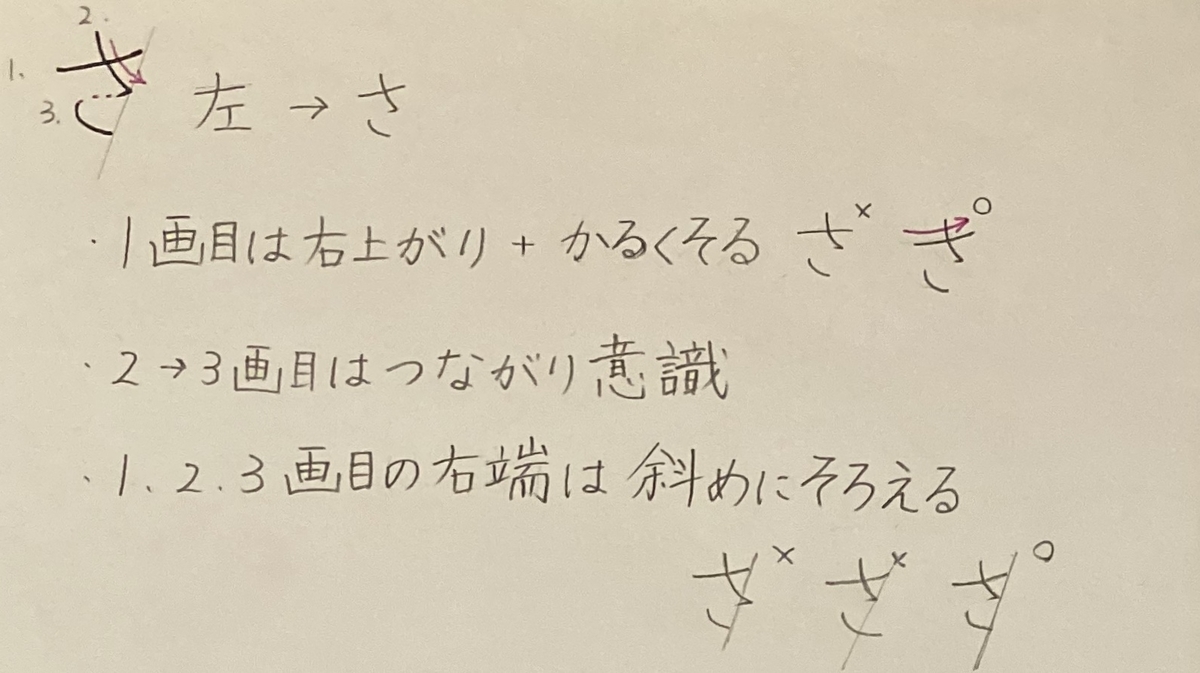 2.
1.
さ
3.
左 → さ
・1画目は右上がり + かるくそる さ× さ○
・2→3画目はつながり意識
・1.2.3画目の右端は斜めにそろえる
さ× さ× さ○